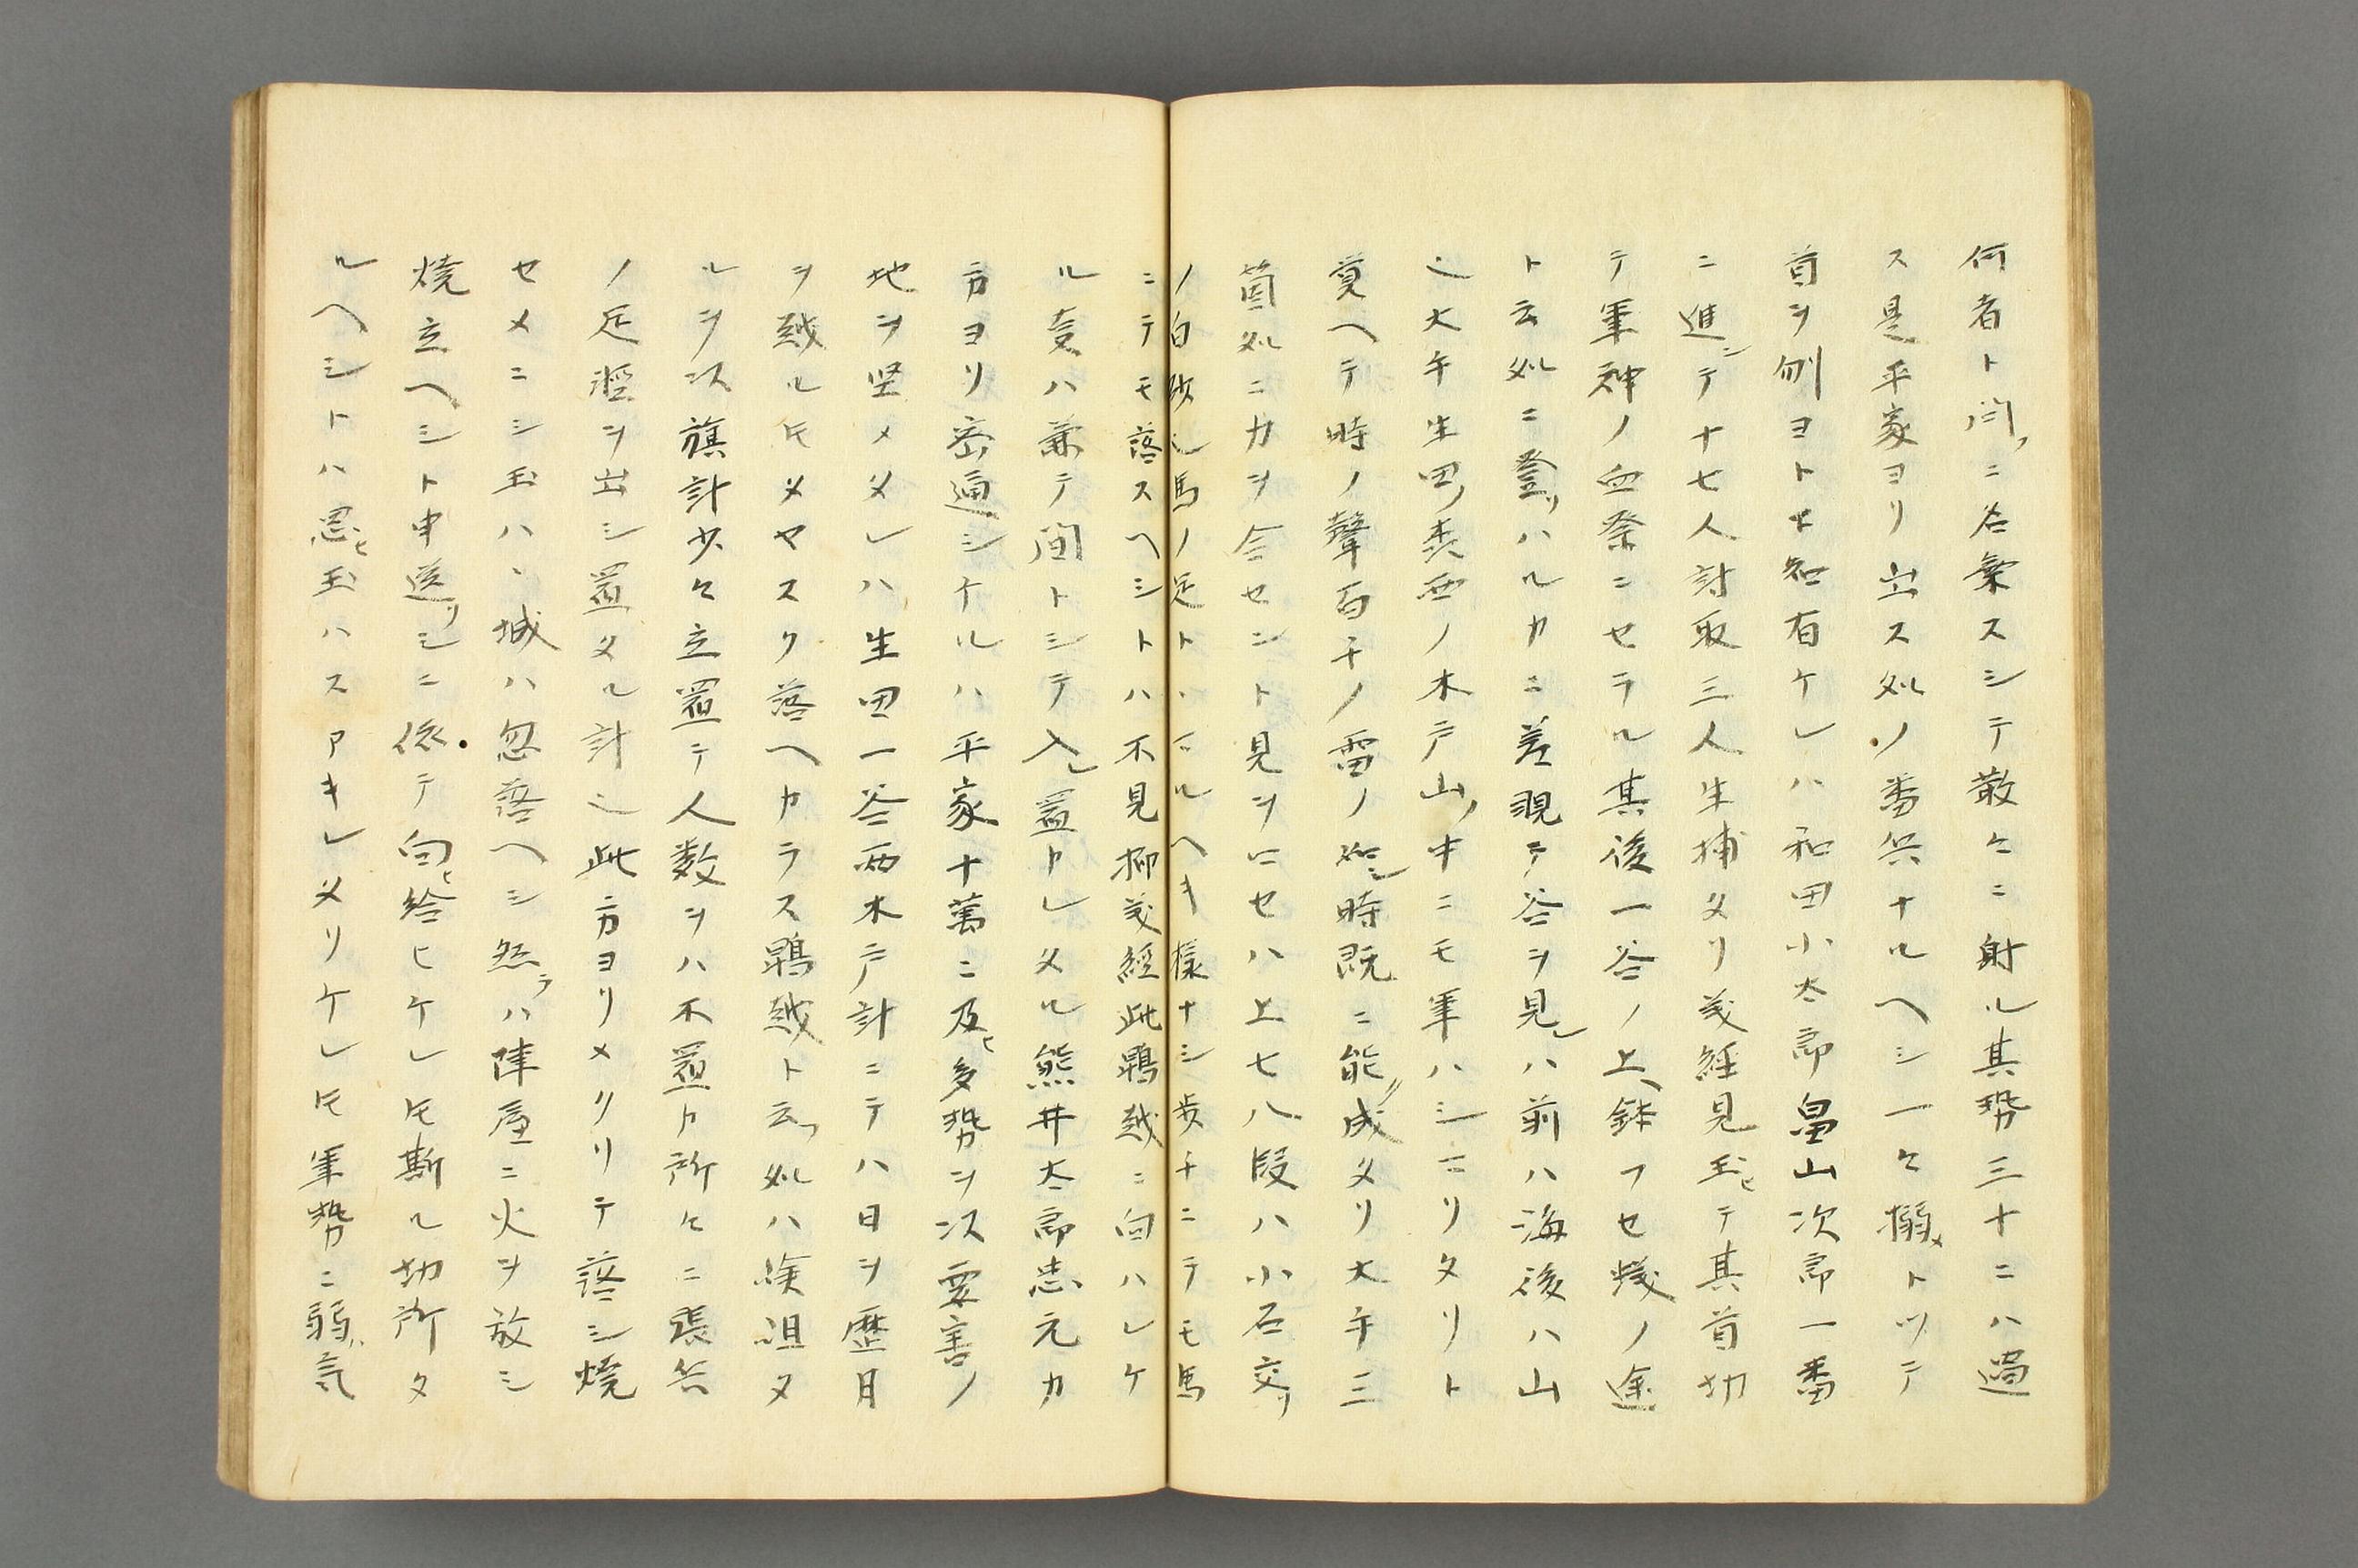 何者ト問フニ答案スシテ散々ニ射ル其勢三十ニハ過
ス是平家ヨリ出ス処ノ番兵ナルヘシ一々搦メトツテ
首ヲ刎ヨトモ知有ケレハ和田小太郎畠山次郎一番
ニ進シテ十七人討取三人生捕タリ義経見玉ヒテ其首切
テ軍神ノ血祭ニセラル其後一谷ノ上ヘ鉢フセ蟻ノ途
ト云処ニ登リハルカニ差覗テ谷ヲ見レハ前ハ海後ハ山
也大手生田ノ森西ノ木戸山ノ中ニモ軍ハシマリタリト
覚ヘテ時ノ聲百千ノ雷ノ如シ時既ニ能ク成タリ大手三
箇処ニ力ヲ合セント見ヲロセハ上七八段ハ小石交リ
ノ白砂也馬ノ足トヽマルヘキ様ナシ歩チニテモ馬
ニテモ落スヘシトハ不見抑義経此鵯越ニ向ハレケ
ル支ハ兼テ間トシテ入レ置カレタル熊井太郎忠元カ
方ヨリ密通シケルハ平家十萬ニ及ヒ多勢ヲ以要害ノ
地ヲ堅メタレハ生田一谷両木戸計ニテハ日ヲ歴月
ヲ越ルトモタヤスク落ヘカラス鵯越ト云フ処ハ嶮岨タ
ルヲ以旗計少々立置テ人数ヲハ不置ト所々ニ張兵
ノ足軽ヲ出シ置タル計也此方ヨリメクリテ落シ焼
セメニシ玉ハヽ城ハ忽落ヘシ然ラハ陣屋ニ火ヲ放シ
焼立ヘシト申送リシニ依テ向ヒ給ヒケレトモ斯ル切所タ
ルヘシトハ思ヒ玉ハスアキレタリケレトモ軍勢ニ弱ハ気